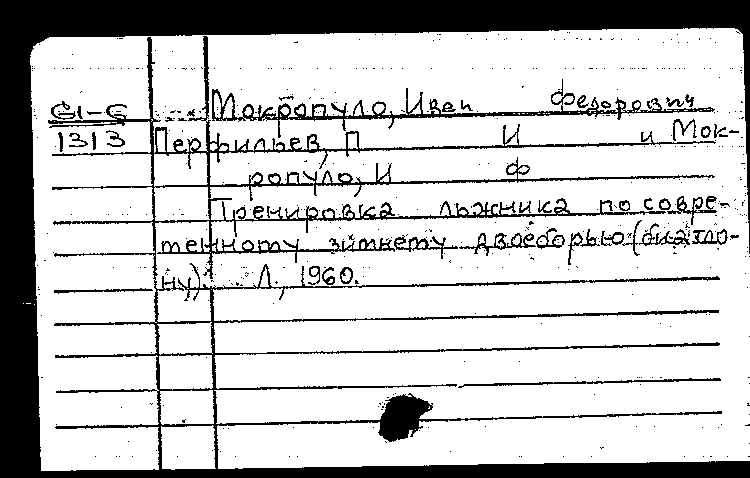 61-5 Мокропуло, Иван Федорович
1313 Перфильев, П И и Мок-
ропуло, И Ф
Тренировка лыжника по совре-
менному зимнему двоеборью (биатло-
ну). Л., 1960.